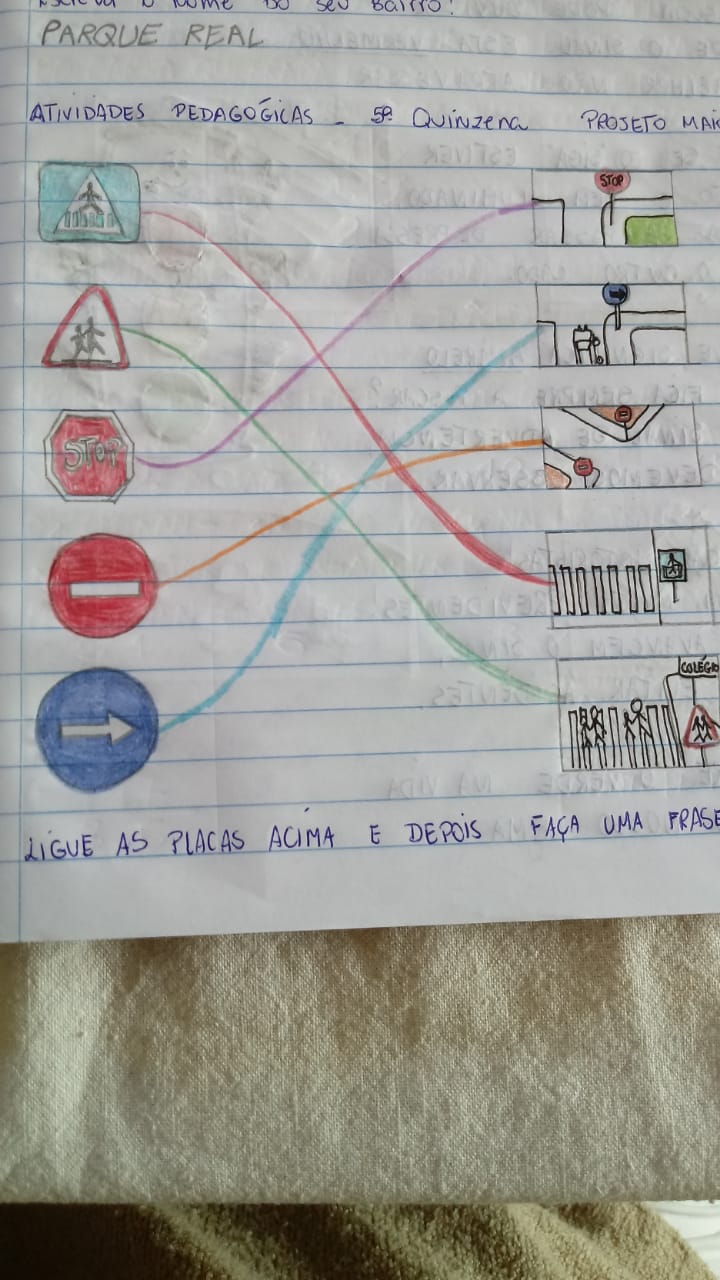 Escreva o nome do seu bairro!
PARQUE REAL
ATIVIDADES PEDAGÓGICAS - 5ª Quinzena PROJETO MAIS
STOP
STOP
COLÉGIO
LIGUE AS PLACAS ACIMA E DEPOIS FAÇA UMA FRASE